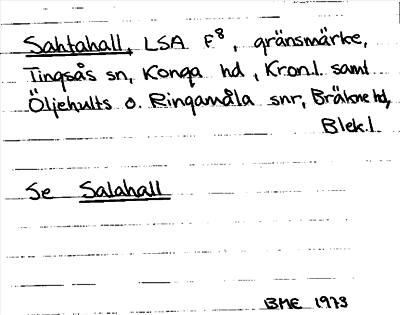 Sahtahall, LSA F8, gränsmärke,
Tingsås sn, Konga hd, Kron.l. samt
Öljehults o. Ringamåla snr, Bräkne hd,
Blek.l.
Se Salahall
BME 1973